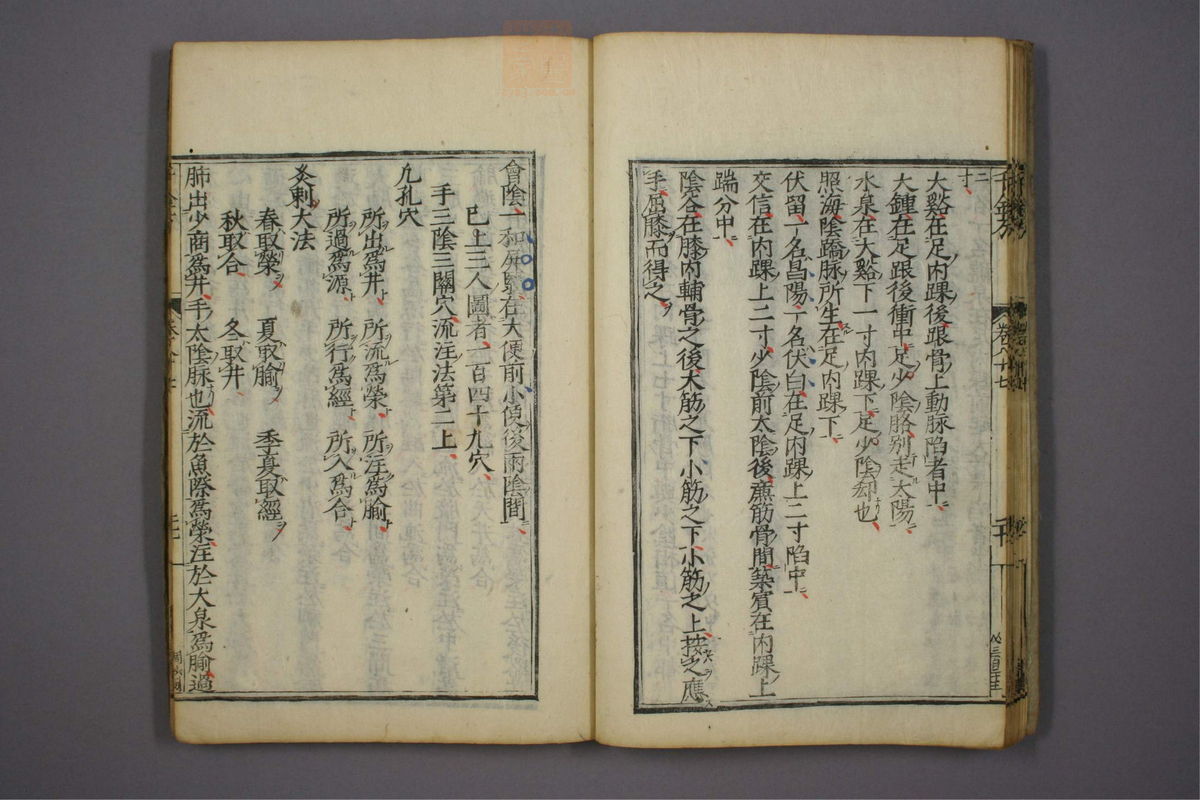 千金方
卷八十七
二十
寸
大谿在足内踝後跟骨上動脉陷者中
大鍾在足跟後衝中足少陰胳别走太陽
水泉在大谿下一寸内踝下足少陰却也
照海陰蹻脉所生在足内踝下
伏留一名昌陽一名伏白在足内踝上二寸陷中
交信在内踝上二寸少陰前太陰後亷筋骨間築賓在内踝上
踹分中
陰谷在膝内輔骨之後大筋之下小筋之下小筋之上按之應
手屈膝而得之
會陰一和屏翳在大便前小便後兩陰間
已上三人圖者一百四十九穴
手三陰三關穴流注法第二上
凢孔穴
所出爲井 所流爲榮 所注爲腧
所過爲源 所行爲經 所入爲合
灸刺大法
春取榮 夏取腧 季夏取經
秋取合 冬取井
肺出少商爲井手太陰脉也流於魚際爲榮注於大泉爲腧過